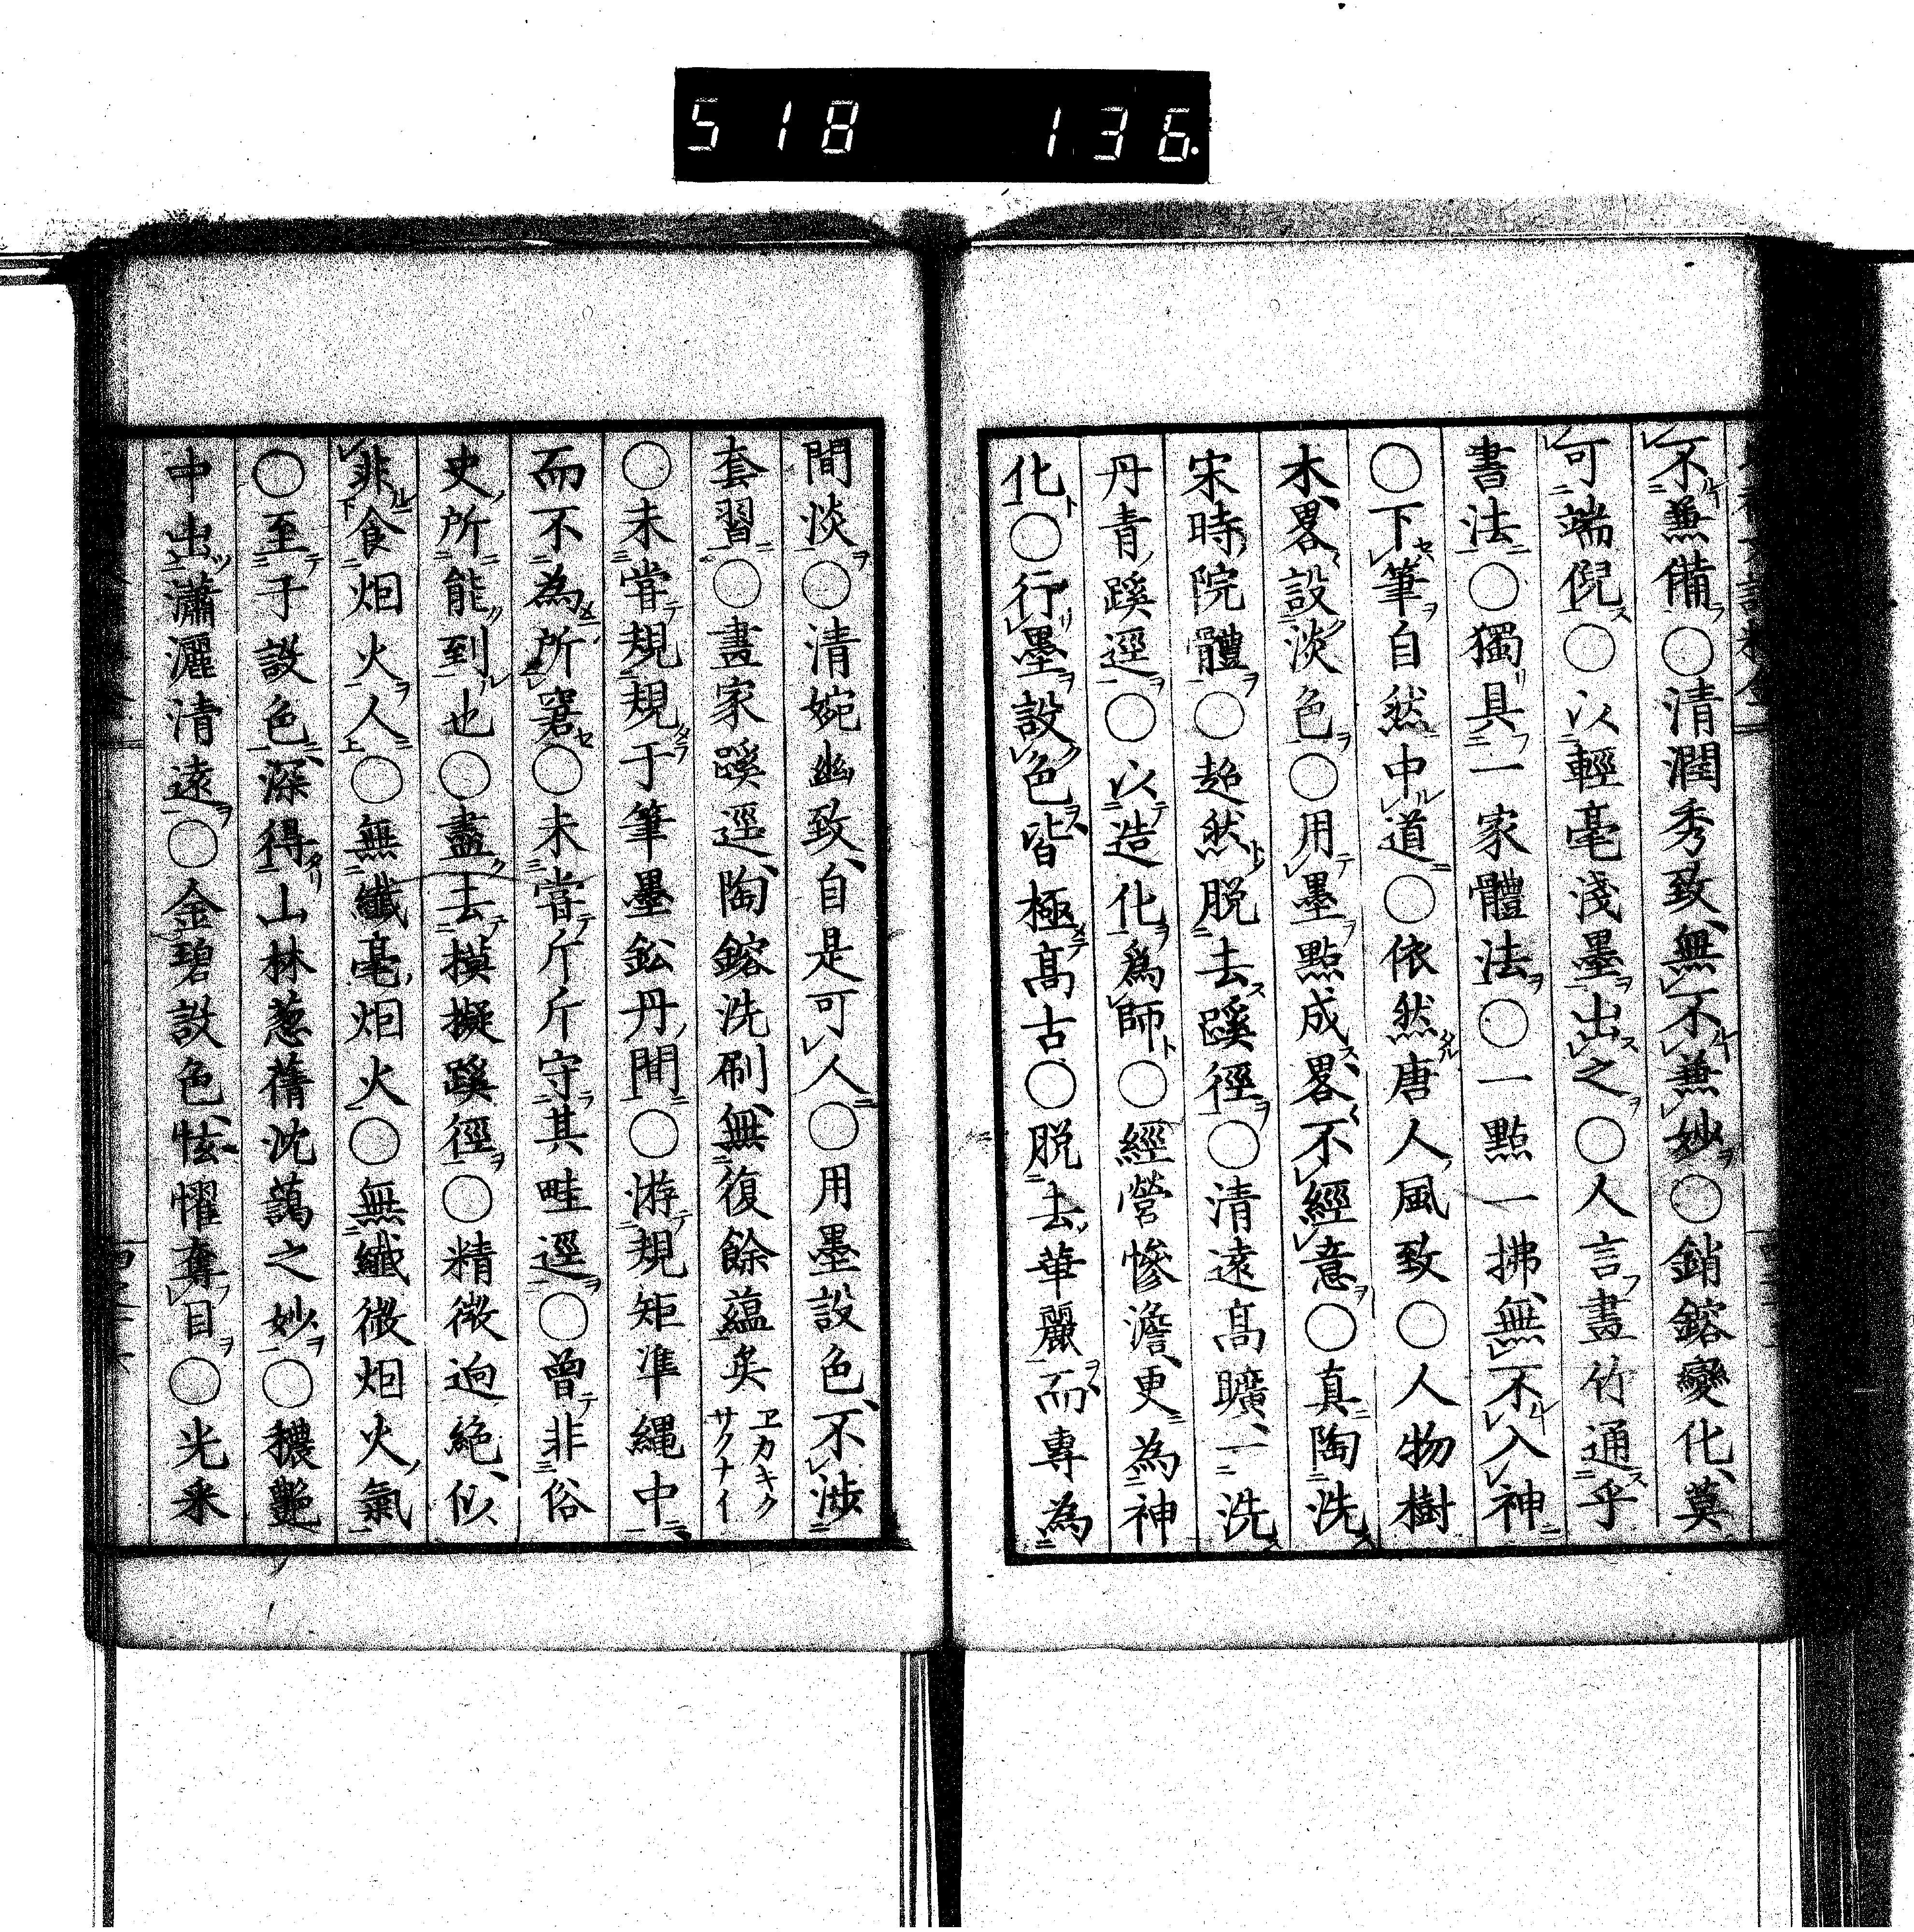 518 136
不無備○清潤秀致無不兼妙○銷鎔變化莫
可端倪○以輕毫淺墨出之○人言畫竹通乎
書法○獨具一家體法○一點一拂無不入神
○下筆自然中道○依然唐人風致○人物樹
木畧設淡色○用墨點成畧不經意○真陶洗
宋時院體○超然脱去蹊徑○清遠髙曠一洗
丹青蹊逕○以造化爲師○經營慘澹更為神
化○行墨設色皆極髙古○脱去華麗而專為
間淡○清婉幽致自是可人○用墨設色不渉
套習○畫家蹊逕陶鎔洗刷無復餘蘊矣 ヱカキクサクナイ
○未嘗規規于筆墨鈆丹間○游規矩準繩中
而不為所窘○未嘗斤斤守其畦逕○曾非俗
史所能到也○盡去摸擬蹊徑○精微逈絶似
非食烟火人○無纖毫烟火○無纖微烟火氣
○至于設色深得山林葱蒨沈藹之妙○穠艷
中出瀟灑清遠○金碧設色怯懼奪目○光釆